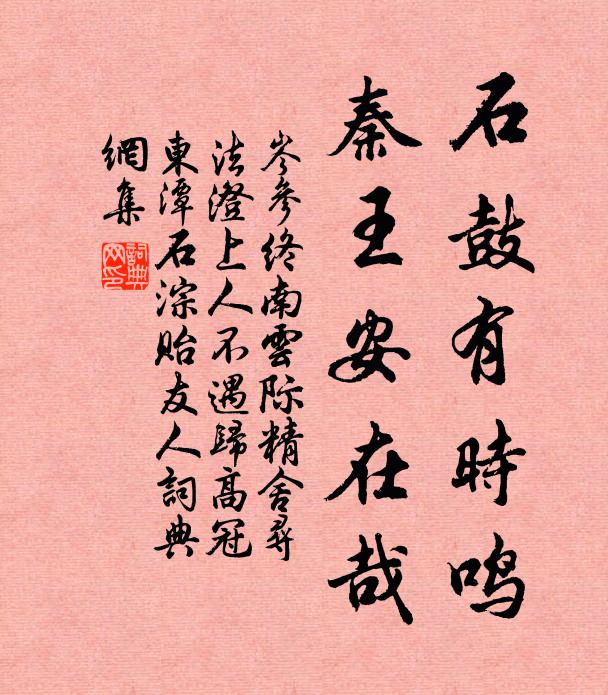 石鼓有時鸣
秦王安在哉
岑參終南雲际精舍尋
法澄上人不遇歸高冠
東潭石淙貽友人詞典
網集
詞典
网印